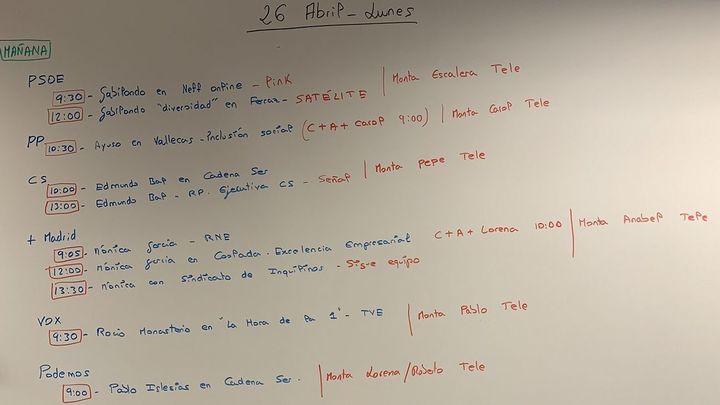 26 Abril - Lunes
MAÑANA
PSOE
9:30 - Gabilondo en Neff online - Pink | Monta Escalera Tele
12:00 - Gabilondo "diversidad" en Ferraz - SATÉLITE
PP
10:30 - Ayuso en Vallecas - inclusión social (C + A + Carol 9:00) | Monta Carol Tele
CS
10:00 - Edmundo Bal en Cadena Ser
13:00 - Edmundo Bal - RP. Ejecutiva CS - Señal | Monta pepe Tele
+ Madrid
9:05 - Mónica García - RNE
12:00 - Mónica García en Coslada. Excelencia Empresarial C + A + Lorena 10:00 | Monta Anabel Tele
13:30 - Mónica con Sindicato de Inquilinos - Sigue equipo
VOX
9:30 - Rocío Monasterio en "La Hora de la 1" - TVE | Monta Pablo Tele
Podemos
9:00 - Pablo Iglesias en Cadena Ser. | Monta Lorena / Tele